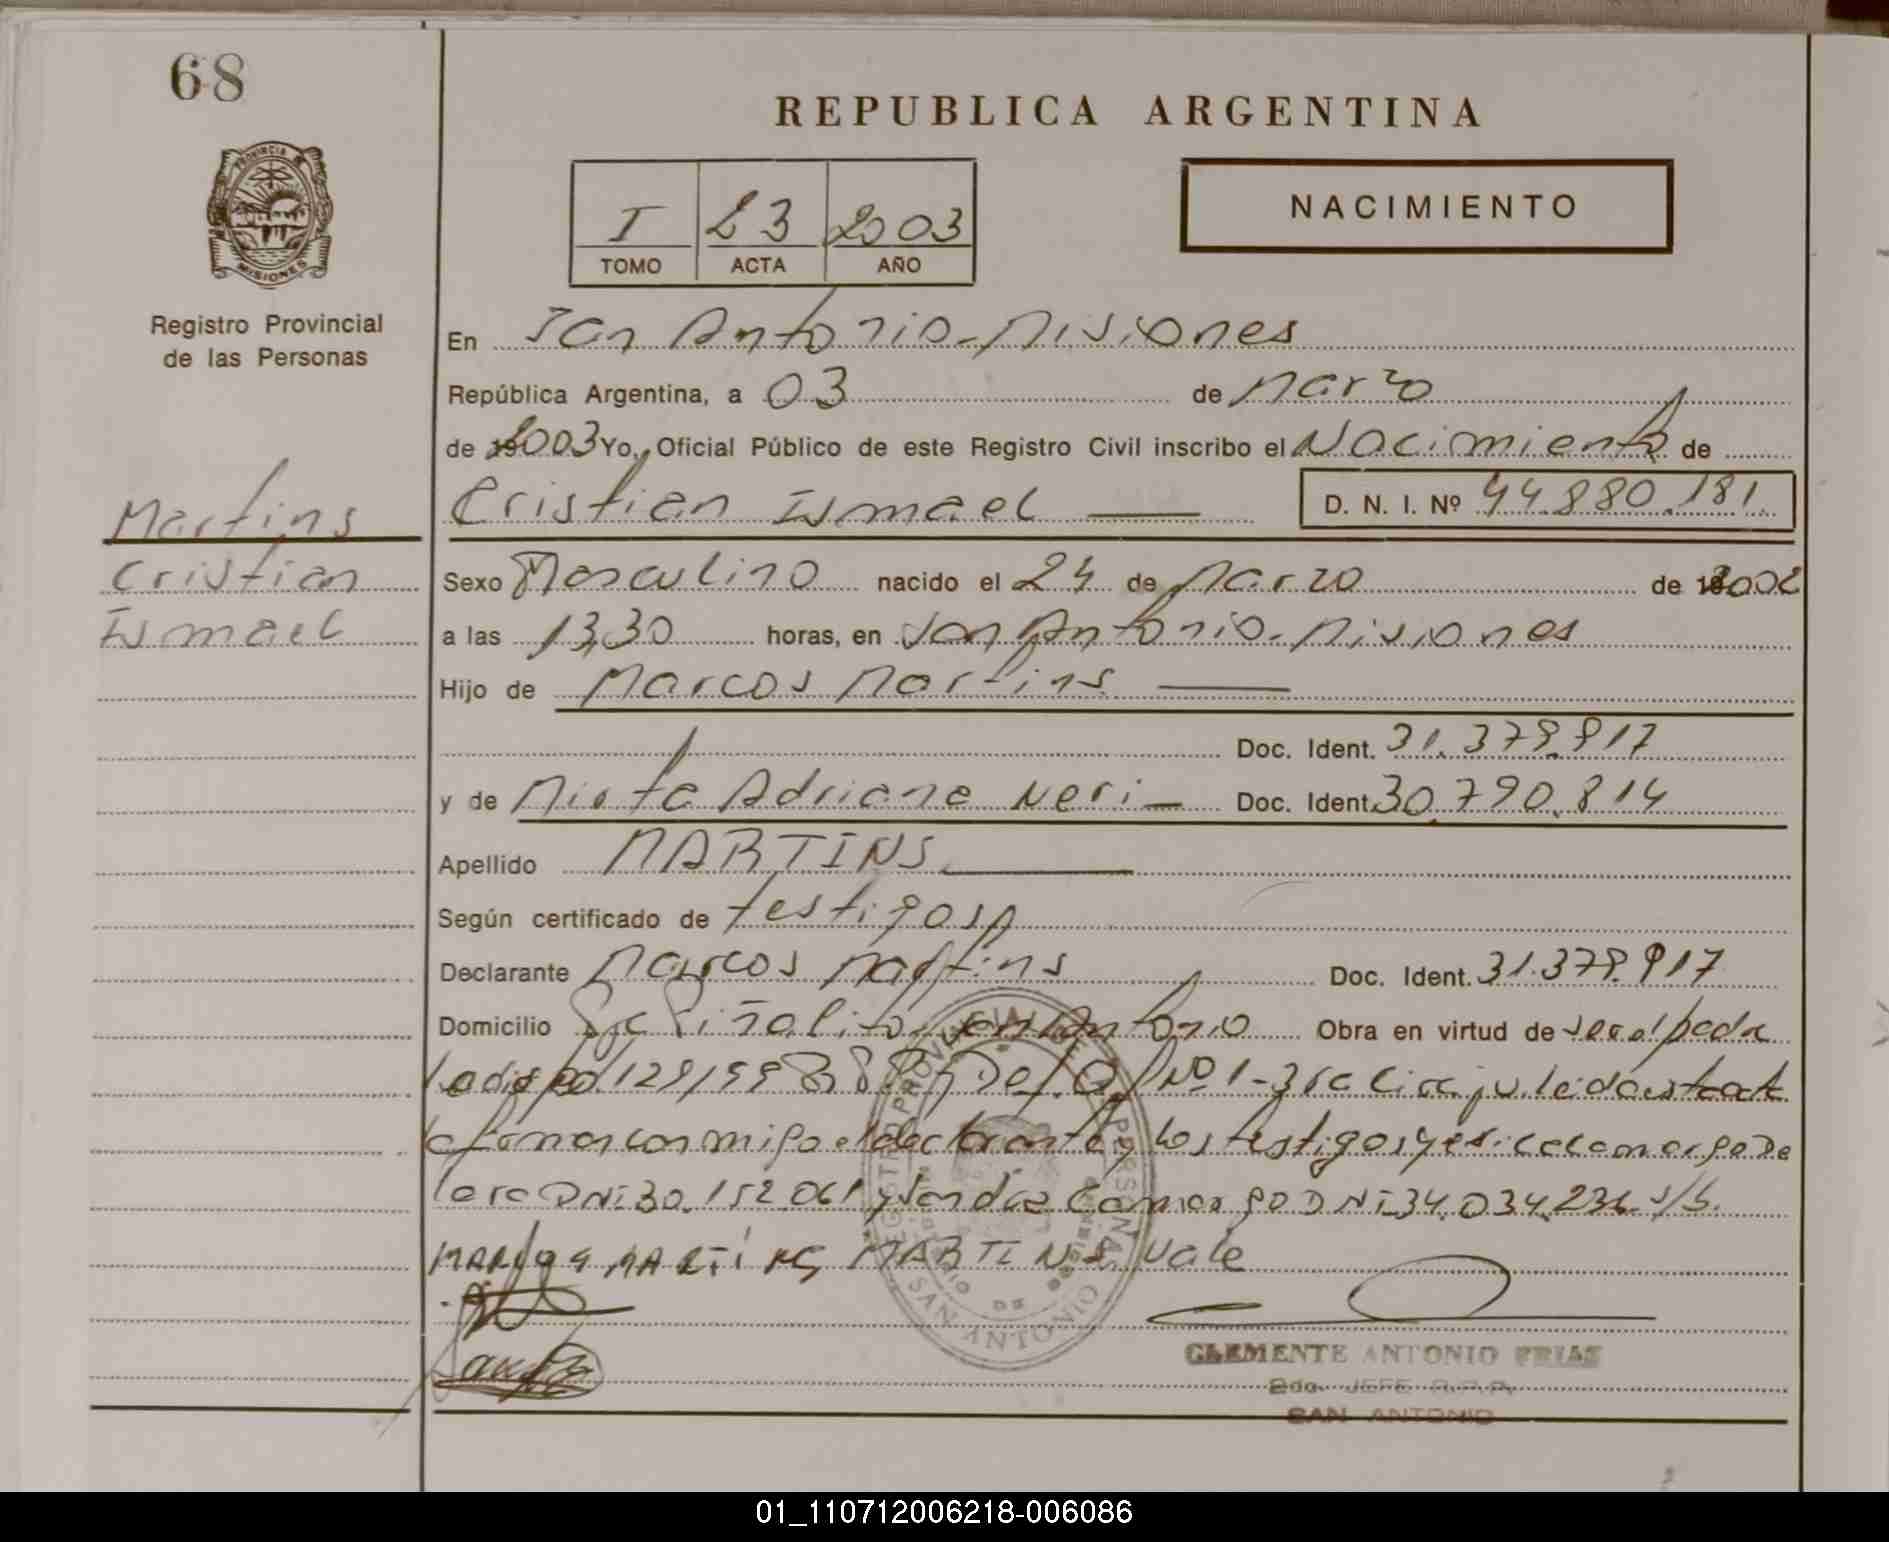 68
REPUBLICA ARGENTINA
PROVINCIA DE
MISIONES
I 23 2003
TOMO ACTA AÑO
NACIMIENTO
Registro Provincial
de las Personas
En San Antonio - Misiones
República Argentina, a 03 de Marzo
de 2003 Yo, Oficial Público de este Registro Civil inscribo el Nacimiento de
Martins
Cristian Ismael D. N. I. Nº 44.880.181
Cristian
Ismael
Sexo Masculino nacido el 24 de Marzo de 2002
a las 13,30 horas, en San Antonio - Misiones
Hijo de Marcos Martins
Doc. Ident. 31.379.917
y de Mirta Adriana Neri Doc. Ident. 30.790.814
Apellido MARTINS
Según certificado de testigos
Declarante Marcos Martins Doc. Ident. 31.379.917
Domicilio Piñalito San Antonio Obra en virtud de ser el padre
129/99 Nº 1 - 3ra
firman conmigo el declarante y los testigos Camargo De
Lara DNI 30.152.061 y Sandra Camargo DNI 34.034.236 s/s.
MARCOS MARTINS MARTINS Vale
REGISTRO PROVINCIAL DE LAS PERSONAS
SAN ANTONIO
CLEMENTE ANTONIO FRIAS
2do. JEFE R.P.P.
SAN ANTONIO
01_110712006218-006086